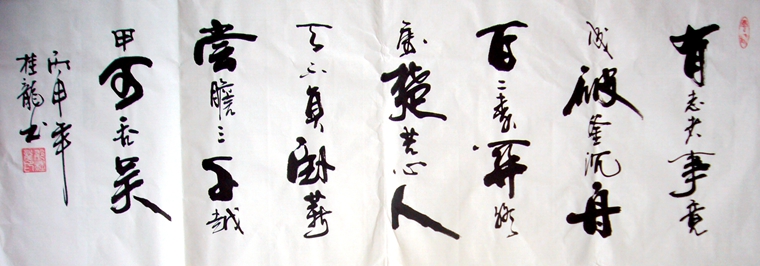 有志者事竟
成破釜沉舟
百二秦关终
属楚苦心人
天不負卧薪
嘗膽三千越
甲可吞吴
丙申年
桂龍书